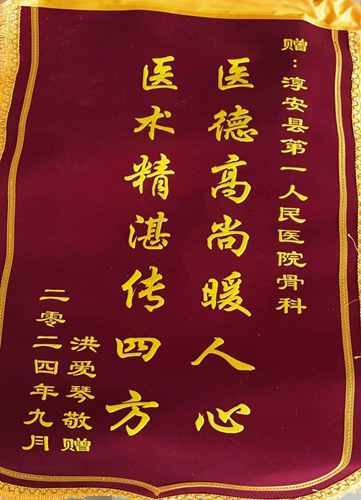 赠：淳安县第一人民医院骨科
医德高尚暖人心
医术精湛传四方
洪爱琴敬赠
二零二四年九月